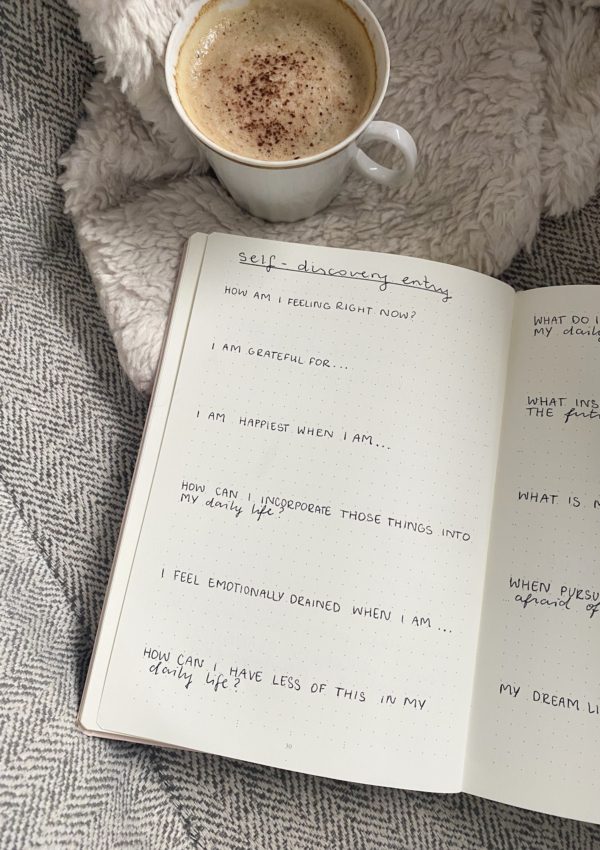 self-discovery entry
HOW AM I FEELING RIGHT NOW?
I AM GRATEFUL FOR...
I AM HAPPIEST WHEN I AM...
HOW CAN I INCORPORATE THOSE THINGS INTO
MY daily life?
I FEEL EMOTIONALLY DRAINED WHEN I AM ...
HOW CAN I HAVE LESS OF THIS IN MY
daily life?
30
WHAT DO I
MY daily
WHAT INS
THE futu
WHAT IS M
WHEN PURSU
afraid of
MY DREAM LI